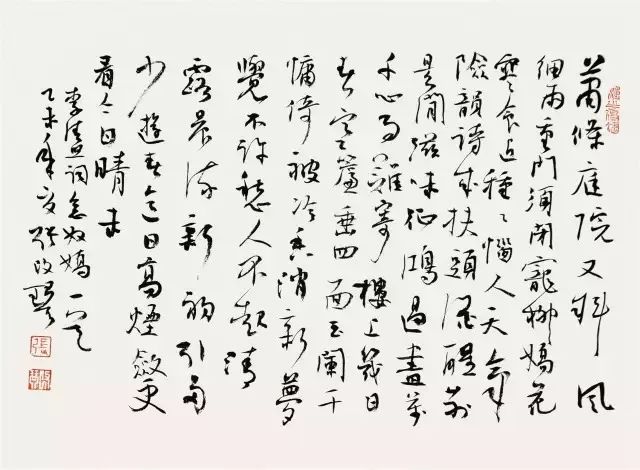 蕭條庭院又斜風
細雨重門須閉寵柳嬌花
寒食近種種惱人天氣
險韻詩成扶頭酒醒別
是閒滋味征鴻過盡萬
千心事難寄樓上幾日
春寒簾垂四面玉闌干
慵倚被冷香消新夢
覺不許愁人不起清
露晨流新桐引多
少遊春意日高煙斂更
看今日晴未
李清照詞念奴嬌一
乙未年夏張改琴
張